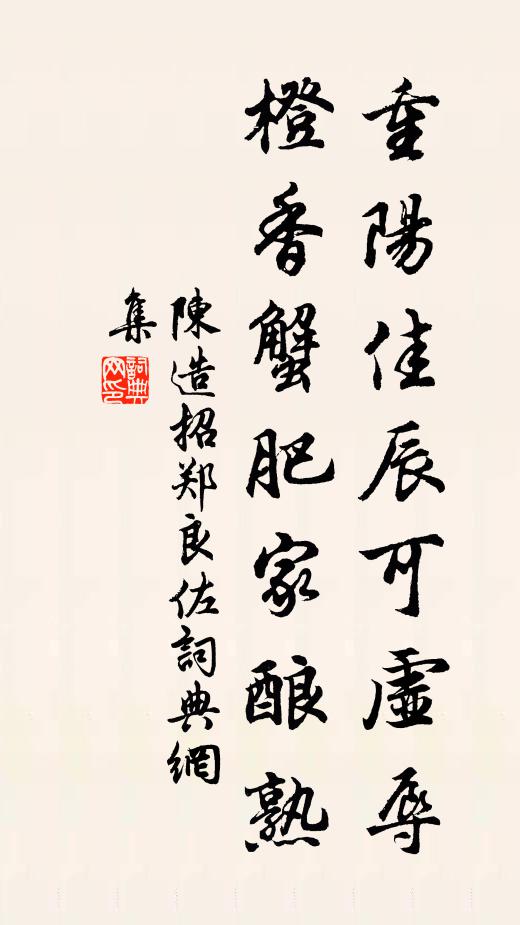 重陽佳辰可虛辱
橙香蟹肥家酿熟
陳造招郑良佐詞典網
集
詞典网印